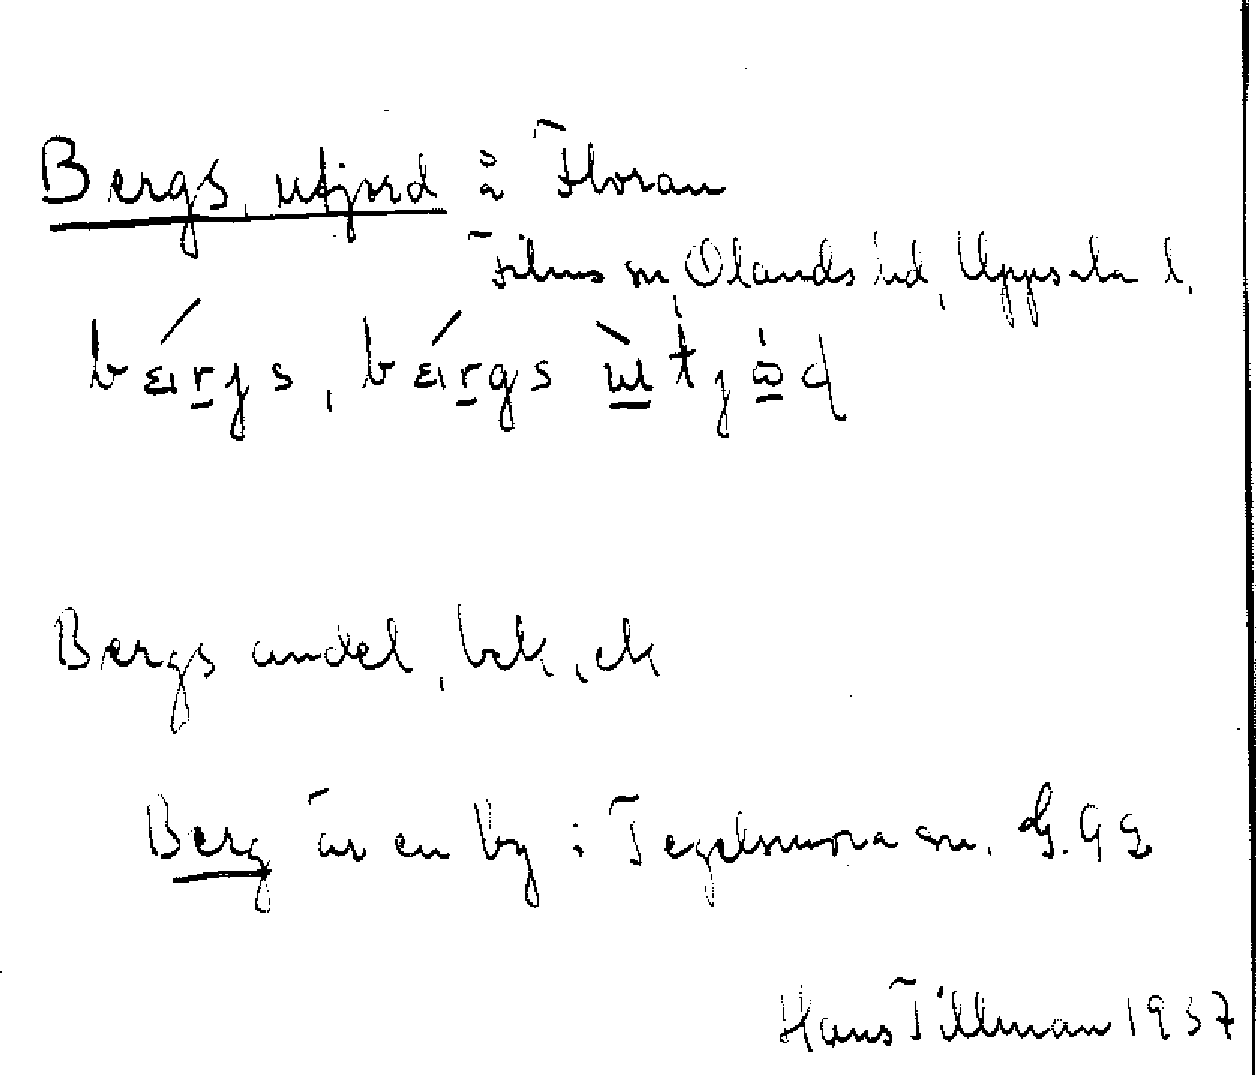 Bergs, utjord å Floran
Films sn, Olands hd, Uppsala l.
bǽrjs, bǽrgs
Bergs andel, bck, ck
Berg är en by i Tegelsmora sn.
Hans Tillman 1937